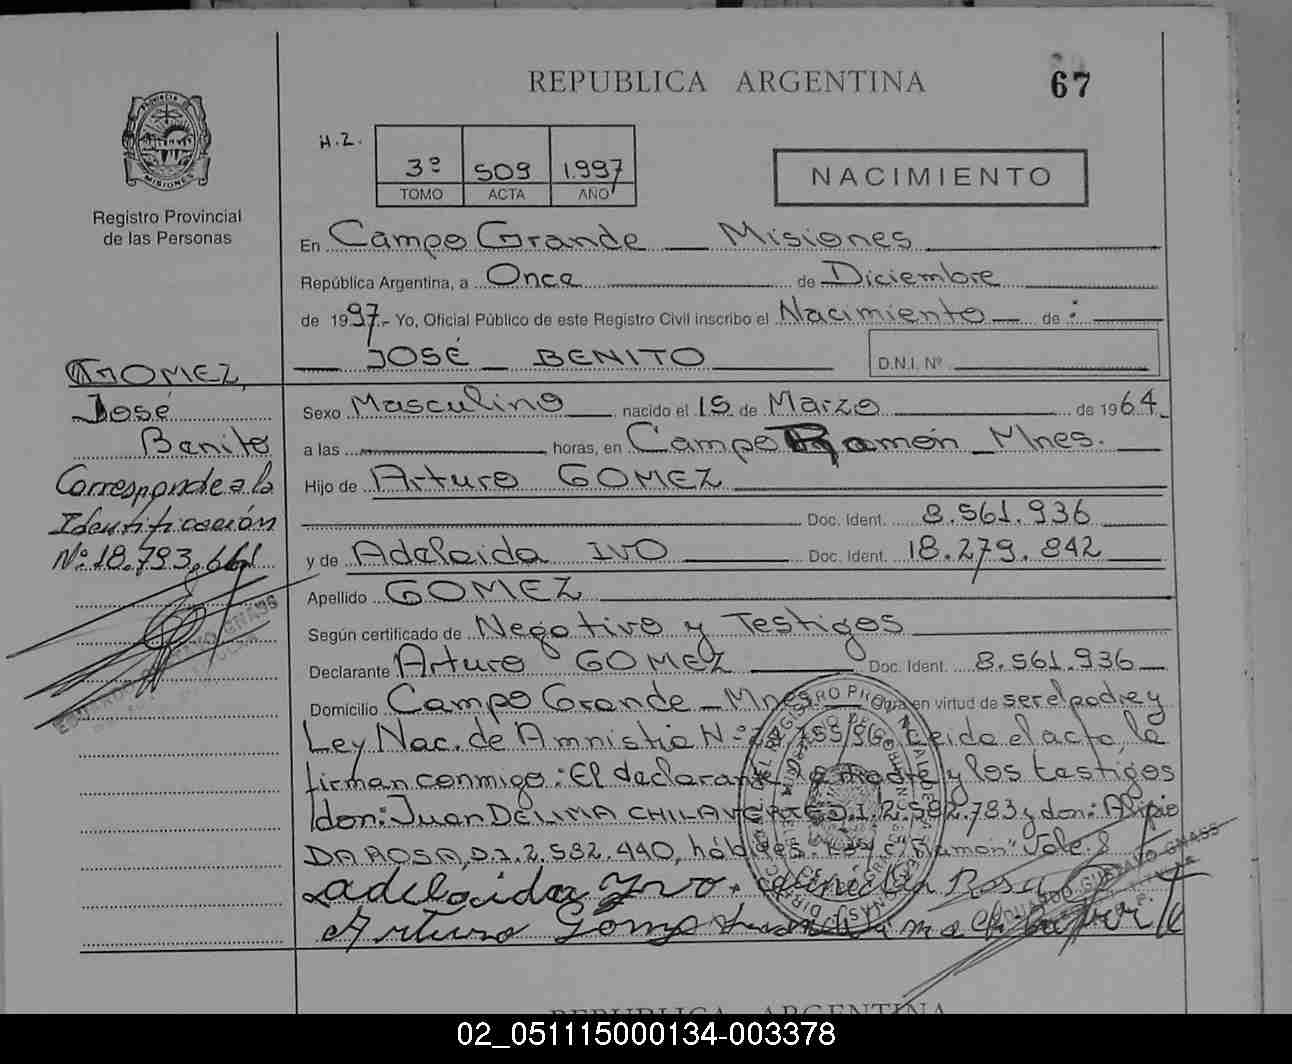 REPUBLICA ARGENTINA
67
H.Z.
3º 509 1.997
TOMO ACTA AÑO
NACIMIENTO
PROVINCIA DE MISIONES
Registro Provincial
de las Personas
En Campo Grande Misiones
República Argentina, a Once de Diciembre
de 1997.- Yo, Oficial Público de este Registro Civil inscribo el Nacimiento de :
JOSÉ BENITO D.N.I. Nº
GOMEZ,
José
Benito
Corresponde a la
Identificación
Nº: 18.793.661
Sexo Masculino nacido el 15 de Marzo de 1964
a las horas, en Campo Ramón Mnes.
Hijo de Arturo GOMEZ
Doc. Ident. 8.561.936
y de Adelaida IVO Doc. Ident. 18.279.842
Apellido GOMEZ
Según certificado de Negativo y Testigos
Declarante Arturo GOMEZ Doc. Ident. 8.561.936
Domicilio Campo Grande - Mnes. Obra en virtud de ser el padre y
Ley Nac. de Amnistia Nº Leida el acta, la
firman conmigo: El declarante, la madre y los testigos
don: Juan DELIMA CHILAVERT D.I. 2.582.783 y don: Alipio
DA ROSA, D.I. 2.582.440, hábiles. "Ramón" Vale.
adelaida Yvo Rosa
Arturo Gomez
EDUARDO GUSTAVO GNASS
REPUBLICA ARGENTINA
02_051115000134-003378